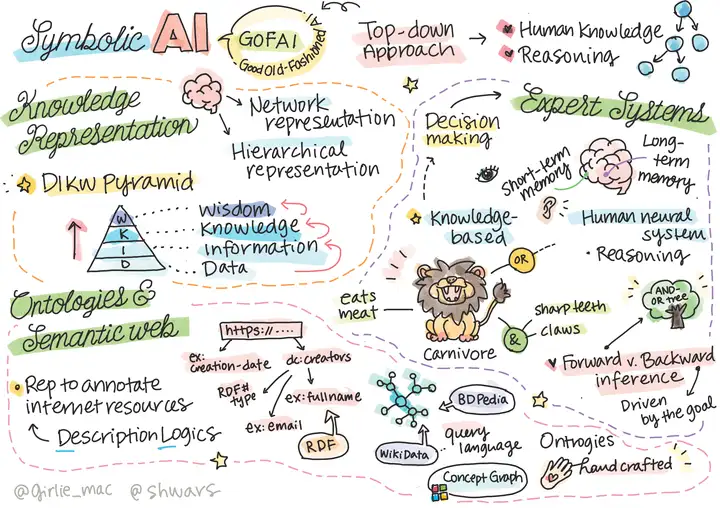 Symbolic AI
GOFAI
Good Old-Fashioned AI
Top-down
Approach
Human Knowledge
Reasoning
Knowledge
Representation
Network
representation
Hierarchical
representation
DIKW Pyramid
W
K
I
D
Wisdom
Knowledge
Information
Data
Expert Systems
Decision
making
Knowledge-
based
Short-term
memory
Long-
term
memory
Human neural
system
Reasoning
OR
eats
meat
sharp teeth
&
claws
Carnivore
AND-
OR tree
Forward v. Backward
inference
Driven
by the goal
Ontologies &
Semantic web
Rep to annotate
internet resources
Description Logics
https://....
ex:
creation-date
dc:creators
RDF#
type
ex:fullname
ex:email
RDF
BDPedia
WikiData
query
language
Concept Graph
Ontrogies
handcrafted
@girlie_mac @shwars